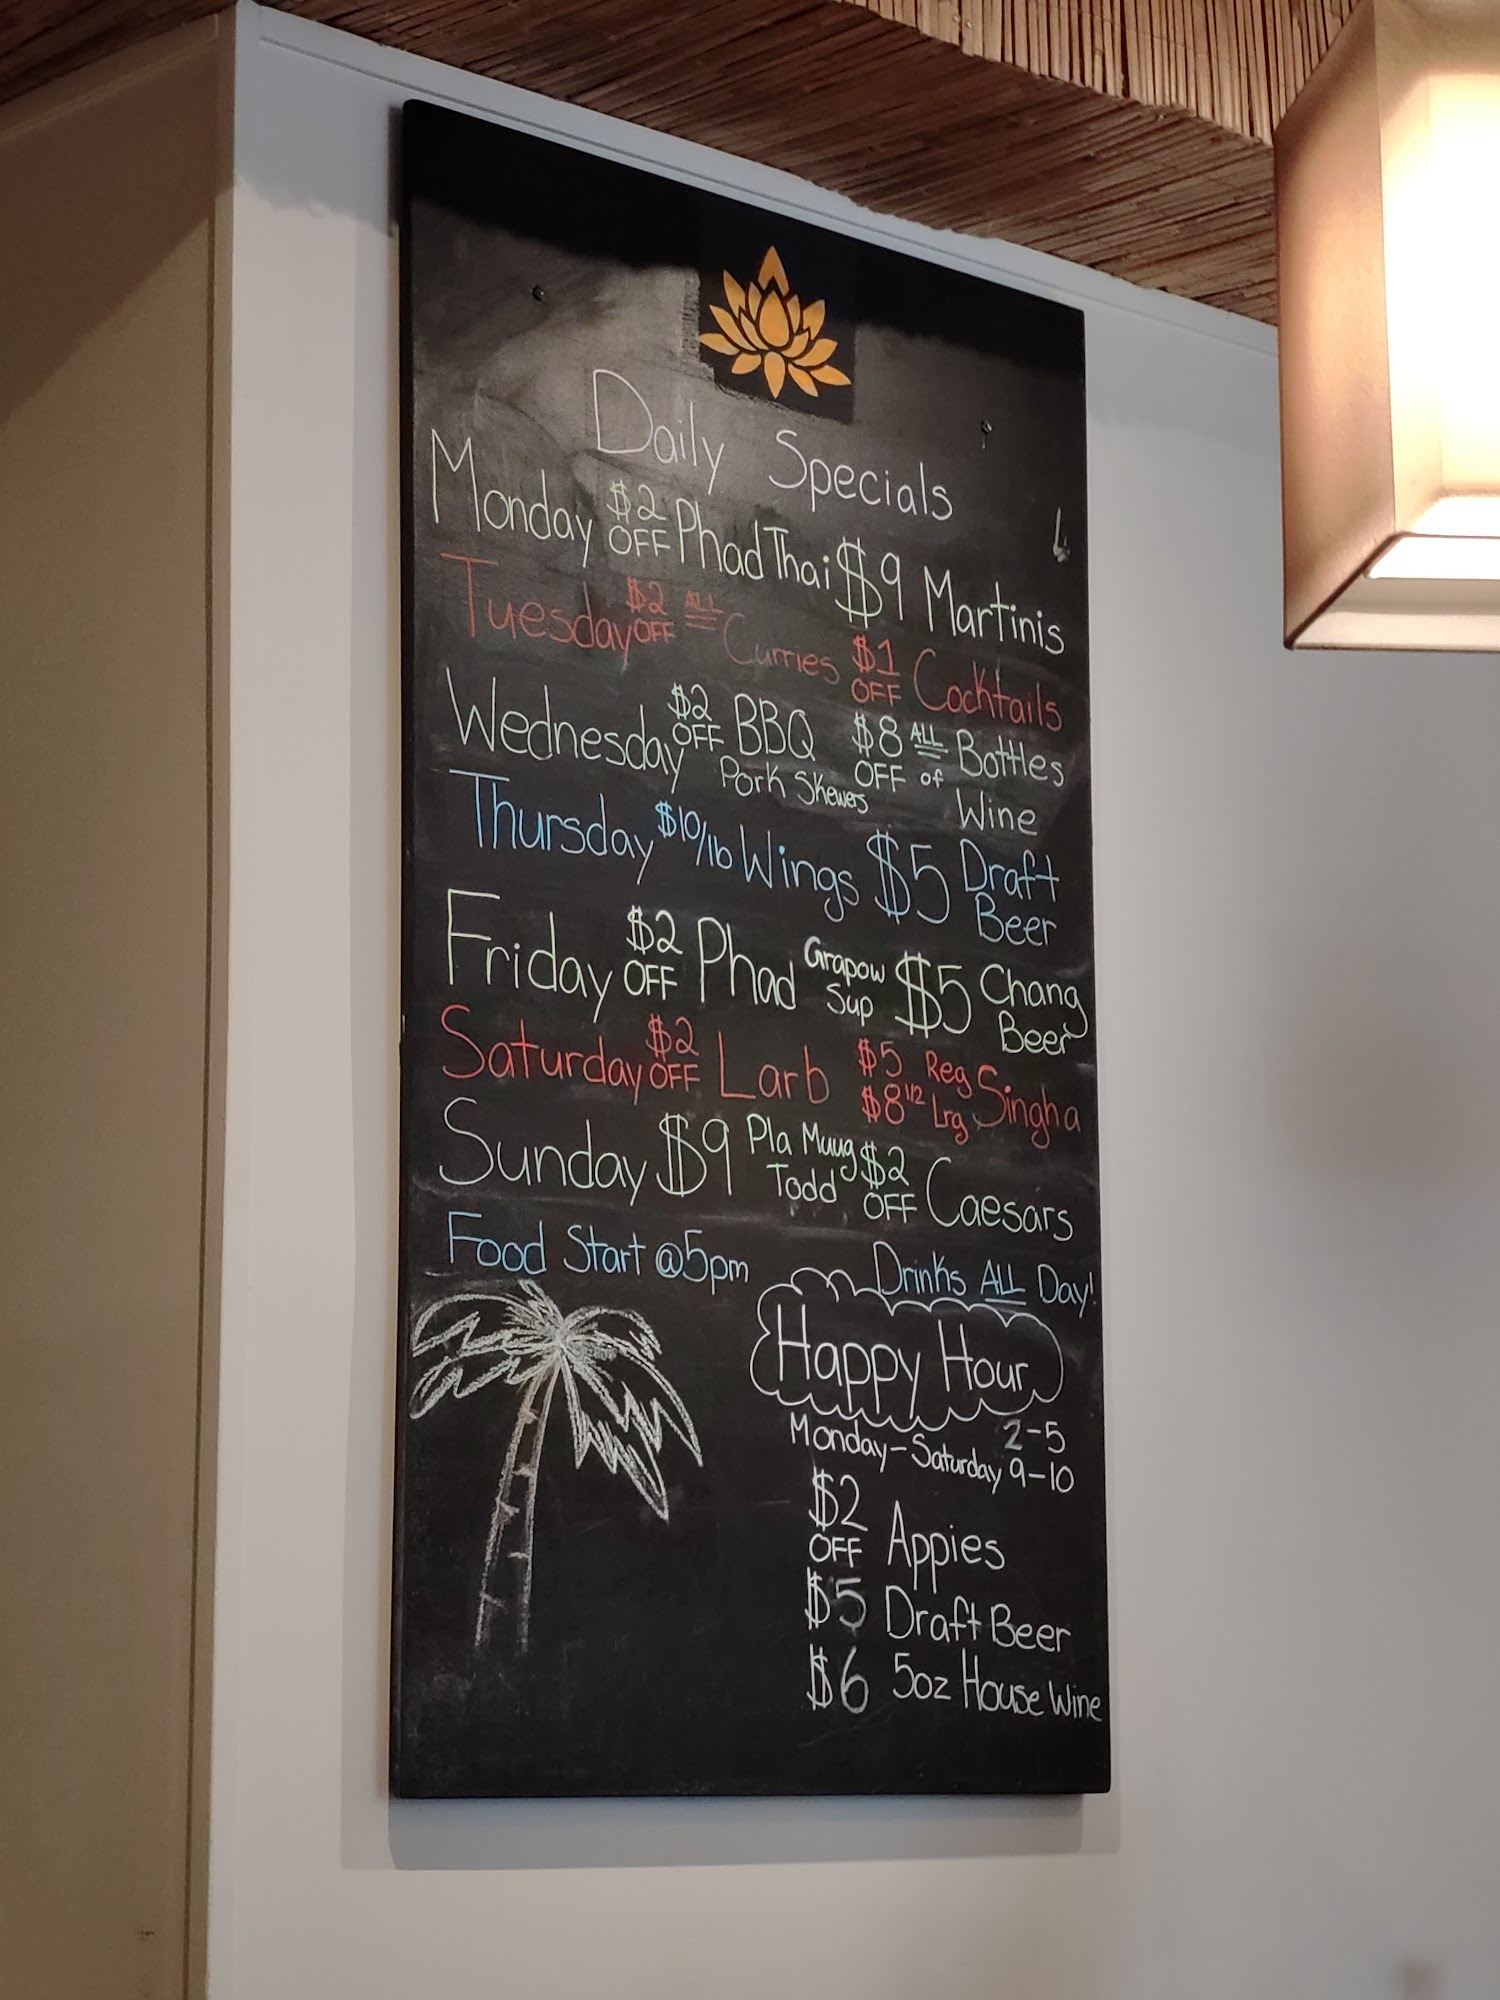 Daily Specials
Monday $2 OFF Phad Thai $9 Martinis
Tuesday $2 OFF ALL Curries $1 OFF Cocktails
Wednesday $2 OFF BBQ Pork Skewers $8 OFF ALL of Bottles Wine
Thursday $10/lb Wings $5 Draft Beer
Friday $2 OFF Phad Grapow Sup $5 Chang Beer
Saturday $2 OFF Larb $5 Reg $8 1/2 Lrg Singha
Sunday $9 Pla Muug Todd $2 OFF Caesars
Food Start @5pm Drinks ALL Day!
Happy Hour
Monday-Saturday 2-5 9-10
$2 OFF Appies
$5 Draft Beer
$6 5oz House Wine